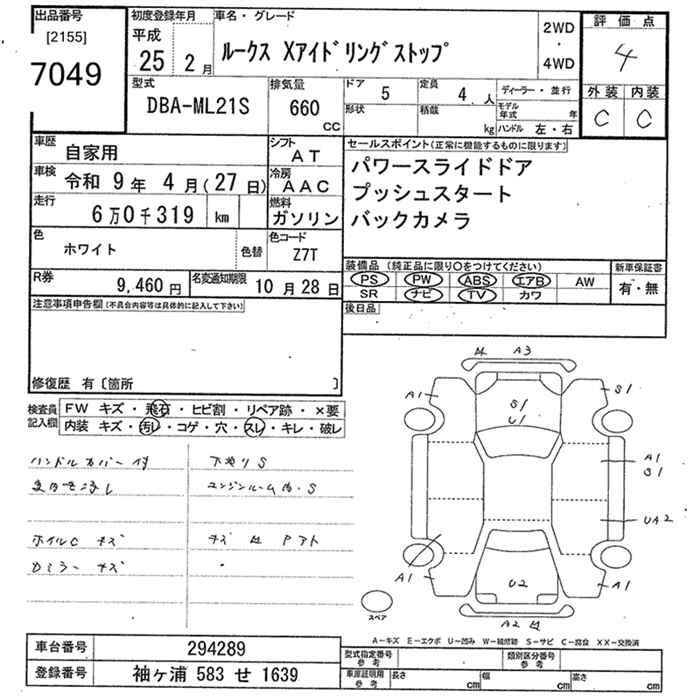 出品番号
[2155]
7049
初度登録年月
平成
25 2 月
車名・グレード
ルークス Xアイドリングストップ
2WD
・
4WD
評価点
4
外装 内装
C C
型式
DBA-ML21S
排気量
660
CC
ドア
5
定員
4 人
ディーラー・並行
形状
積載
kg
モデル年式 年
ハンドル 左・右
車歴
自家用
シフト
AT
車検
令和 9 年 4 月 (27 日)
冷房
AAC
走行
6万0千319 km
燃料
ガソリン
色
ホワイト
色替
色コード
Z7T
R券
9,460 円
名変通知期限
10 月 28 日
セールスポイント(正常に機能するものに限ります)
パワースライドドア
プッシュスタート
バックカメラ
装備品 (純正品に限り○をつけてください)
PS PW ABS エアB AW
SR ナビ TV カワ
新車保証書
有・無
後日品
注意事項申告欄(不具合内容等は具体的に記入して下さい)
修復歴 有〔箇所 〕
検査員記入欄
FW キズ・飛石・ヒビ割・リペア跡・×要
内装 キズ・汚レ・コゲ・穴・スレ・キレ・破レ
ハンドルカバー付
下廻りS
エンジンルーム内・S
ホイルC キズ
ドミラー キズ
A3
A1
S1
S1
U1
A1
S1
UA2
A1
U2
A1
A2
スペア
A-キズ E-エクボ U-凹み W-補修跡 S-サビ C-腐食 XX-交換済
車台番号
294289
登録番号
袖ヶ浦 583 せ 1639
型式指定番号
参考
類別区分番号
参考
車庫証明用
参考
長さ cm
幅 cm
高さ cm